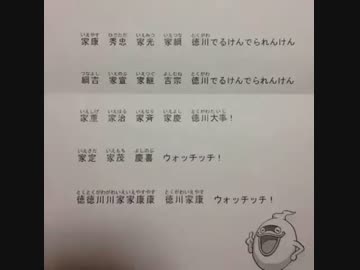 いえやす ひでただ いえみつ いえつな とくがわ
家康 秀忠 家光 家綱 徳川でるけんでられんけん
つなよし いえのぶ いえつぐ よしむね とくがわ
綱吉 家宣 家継 吉宗 徳川でるけんでられんけん
いえしげ いえはる いえなり いえよし とくがわだいじ
家重 家治 家斉 家慶 徳川大事！
いえさだ いえもち よしのぶ
家定 家茂 慶喜 ウォッチッチ！
とくとくがわがわいえいえやすやす とくがわいえやす
徳徳川川家家康康 徳川家康 ウォッチッチ！